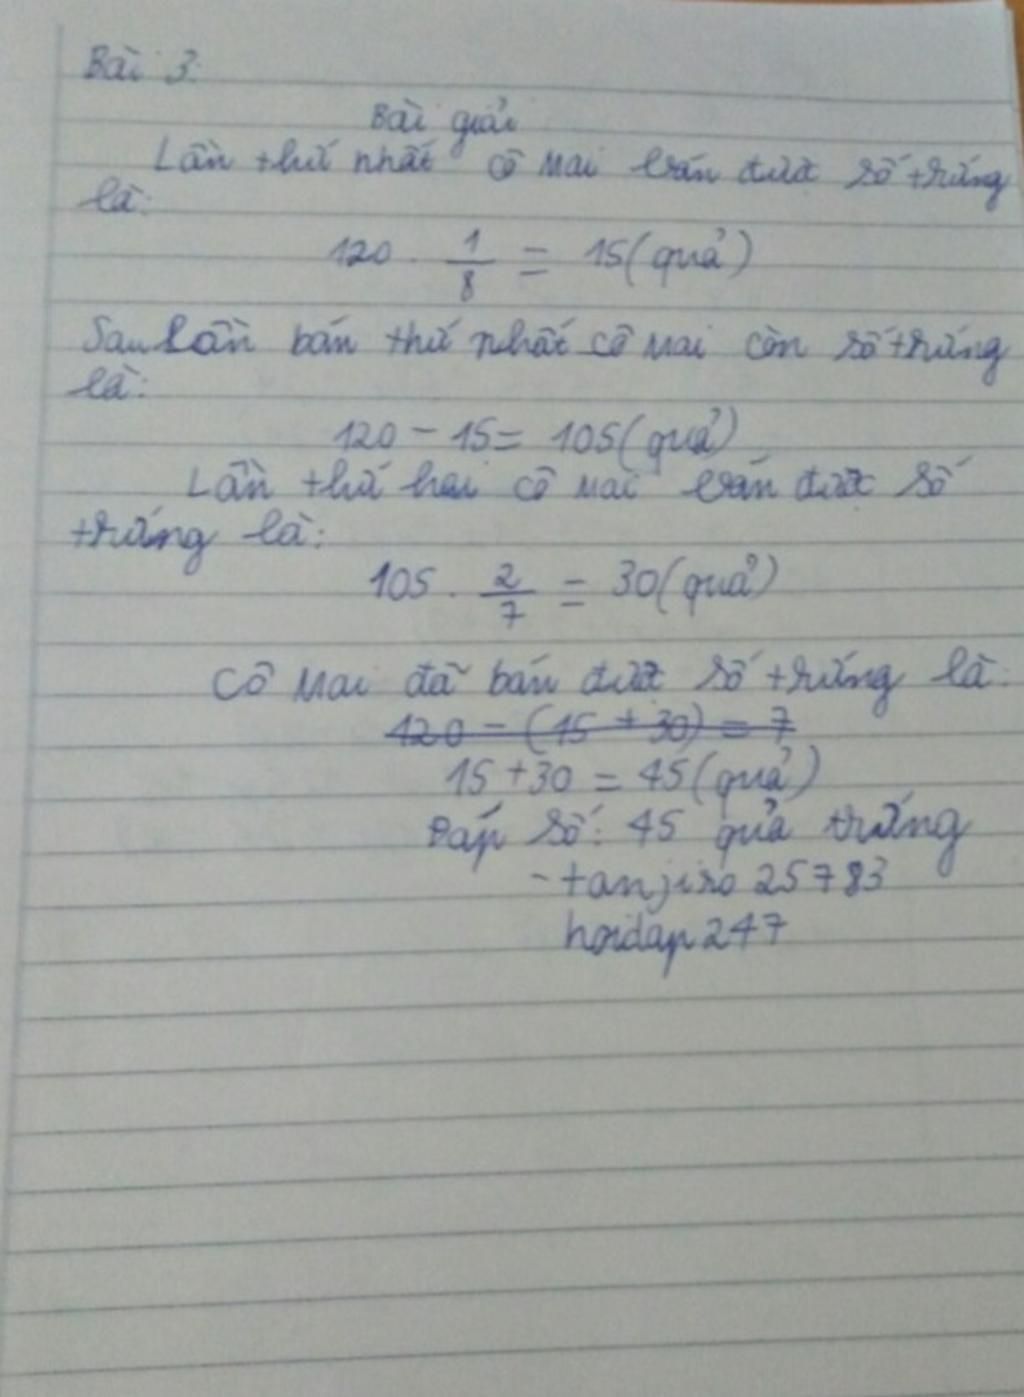 Bài 3:
Bài giải
Lần thứ nhất cô Mai bán được số trứng
là:
120 . 1/8 = 15 (quả)
Sau lần bán thứ nhất cô Mai còn số trứng
là:
120 - 15 = 105 (quả)
Lần thứ hai cô Mai bán được số
trứng là:
105 . 2/7 = 30 (quả)
Cô Mai đã bán được số trứng là:
120 - (15 + 30) = 7
15 + 30 = 45 (quả)
Đáp số: 45 quả trứng
- tanjiro 25783
hoidap247